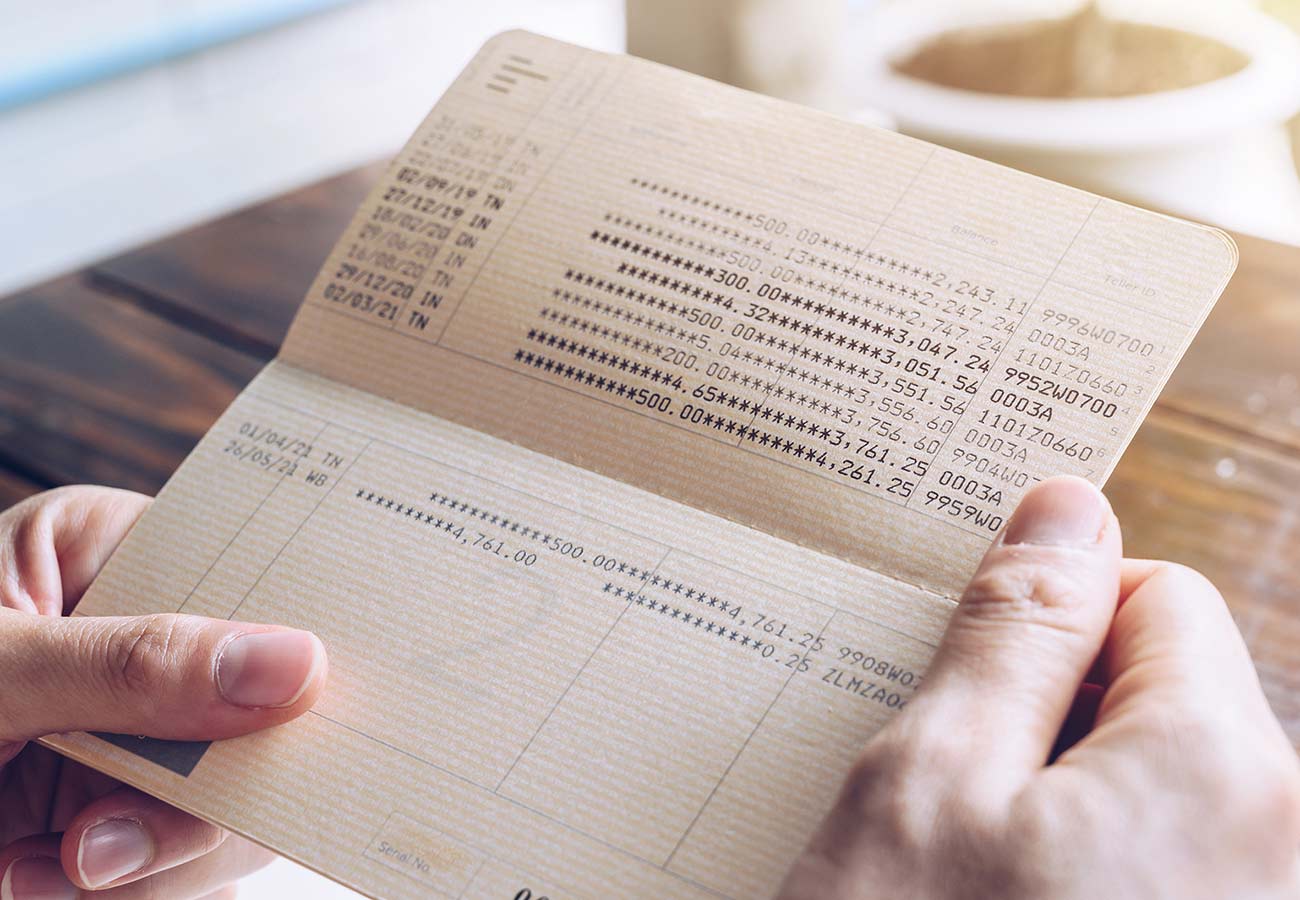 Balance Teller ID
TN ***********500.00**********2,243.11 9996W0700 1
IN **********4.13**********2,247.24 0003A 2
DN ***********500.00**********2,747.24 1101Z0660 3
02/09/19 TN ***********300.00**********3,047.24 9952W0700 4
27/12/19 IN **********4.32**********3,051.56 0003A 5
18/02/20 DN ***********500.00**********3,551.56 1101Z0660 6
29/06/20 IN ***********5.04**********3,556.60 0003A
16/08/20 TN ***********200.00**********3,756.60 9904W0
29/12/20 IN ***********4.65**********3,761.25 0003A
02/03/21 TN ***********500.00**********4,261.25 9959W0
01/04/21 TN ***********500.00**********4,761.25 9908W0
26/05/21 WB *********4,761.00 *************0.25 ZLMZA0
Serial No.